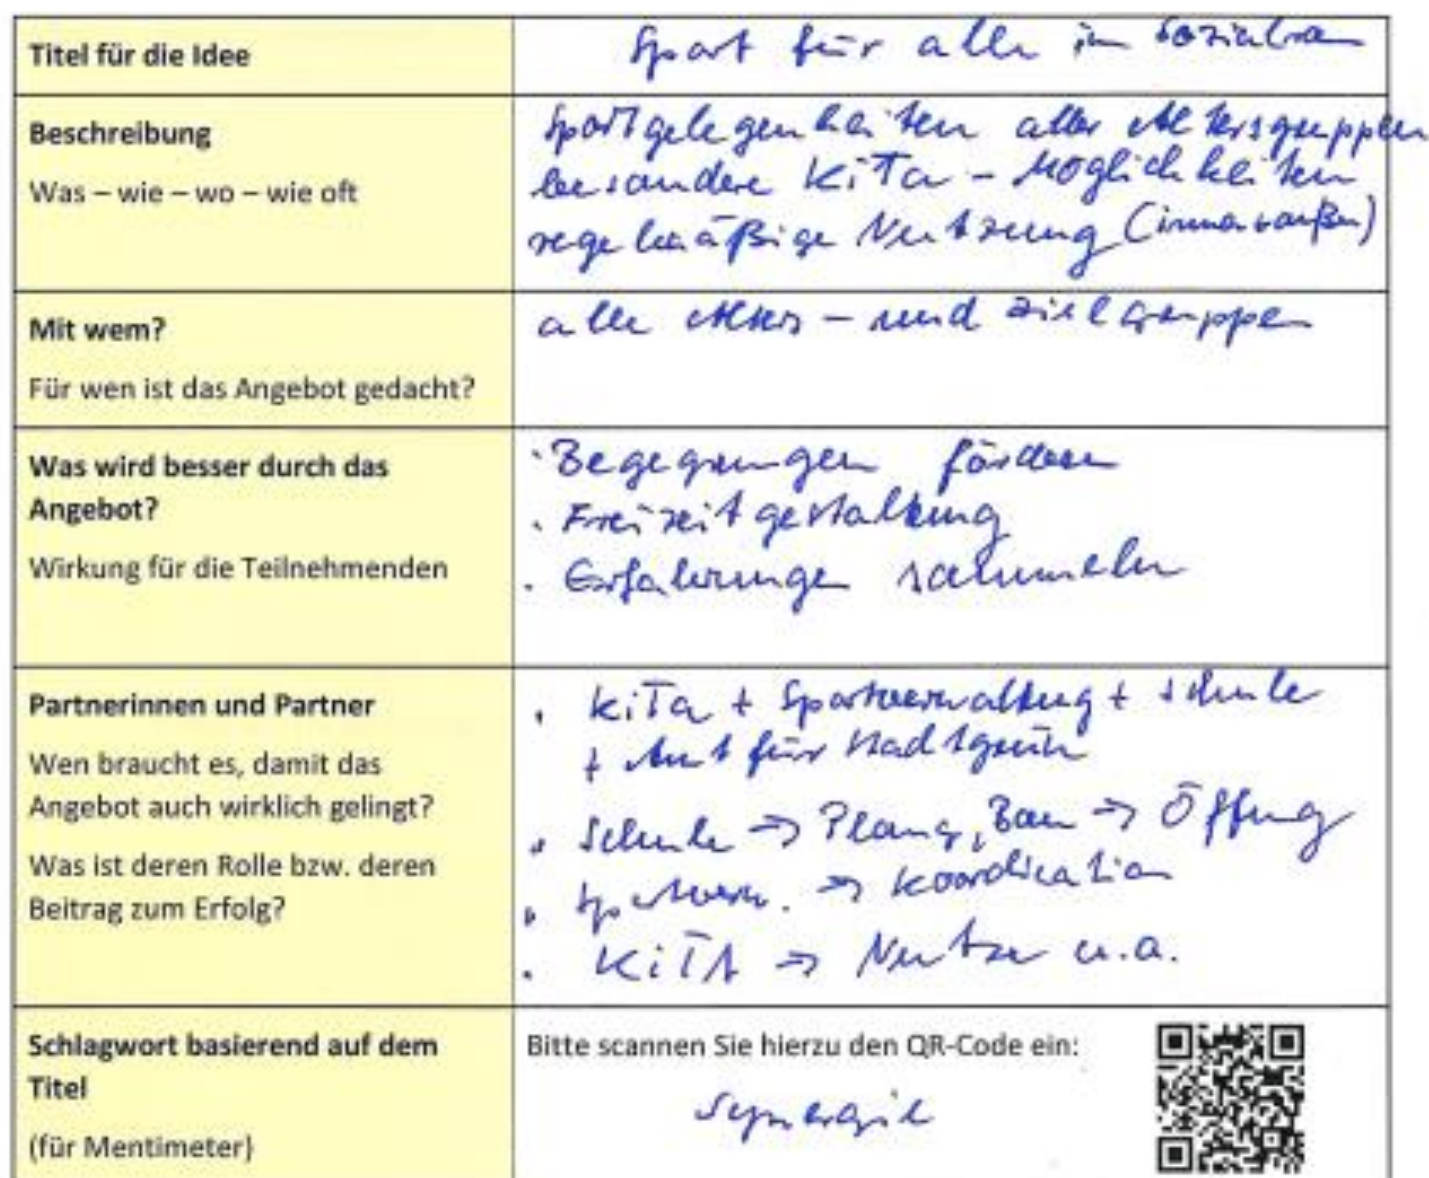 Titel für die Idee
Sport für alle im Sozialraum
Beschreibung
Was – wie – wo – wie oft
Sportgelegenheiten aller Altersgruppen
besondere KiTa - Möglichkeiten
regelmäßige Nutzung (innen + außen)
Mit wem?
Für wen ist das Angebot gedacht?
alle Alters - und Zielgruppen
Was wird besser durch das
Angebot?
Wirkung für die Teilnehmenden
· Begegnungen fördern
· Freizeitgestaltung
· Erfahrungen sammeln
Partnerinnen und Partner
Wen braucht es, damit das
Angebot auch wirklich gelingt?
Was ist deren Rolle bzw. deren
Beitrag zum Erfolg?
· KiTa + Sportverwaltung + Schule
+ Amt für Stadtgrün
· Schule => Planung, Bau => Öffnung
· Sportverw. => Koordination
· KiTA => Nutzer u.a.
Schlagwort basierend auf dem
Titel
(für Mentimeter)
Bitte scannen Sie hierzu den QR-Code ein:
Synergie